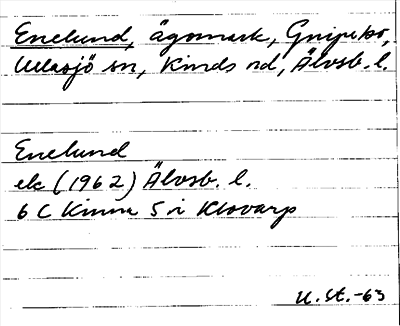 Enelund, ägomark, Gnipebo,
Ullasjö sn, Kinds hd, Älvsb. l.
Enelund
ek (1962) Älvsb. l.
6 C Kinna 5 i Klovarp
U. St. -63